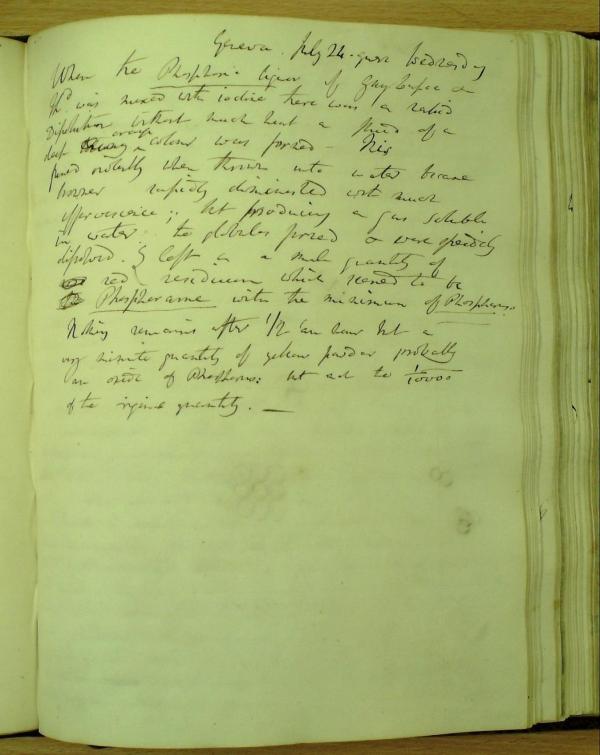 Geneva. July 24. Wednesday
When the Phosphoric liquor of Gay Lussac &
Thd was mixed with iodine there was a rapid
Dissolution without much heat a fluid of a
deep orange colour was formed - This
fluid when thrown into water became
brown rapidly diminished with much
effervescence;; but producing a gas soluble
in water the globules fused & were speedily
dissolved. & left in a small quantity of
red residuum which seemed to be
Phosphorane with the minimum of Phosphorus.
Nothing remains after 1/2 an hour but a
very minute quantity of yellow powder probably
an oxide of Phosphorus: but not the 1/10000
of the original quantity. —